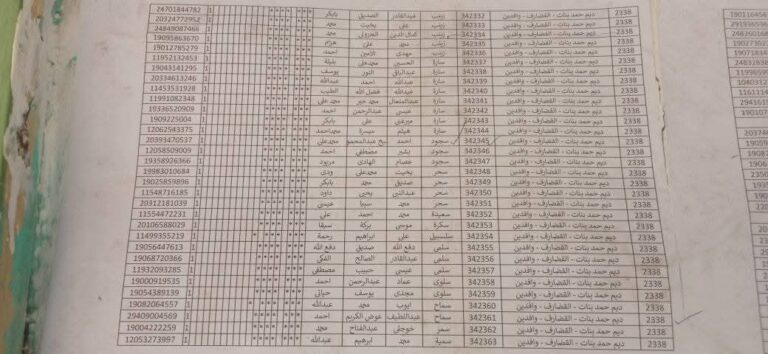 2338 ديم حمد بنات - القضارف - وافدين 342332 زينب عبدالقادر الصديق بابكر 1 24701844782
2338 ديم حمد بنات - القضارف - وافدين 342333 زينب علي بخيت محمد 1 20324772952
2338 ديم حمد بنات - القضارف - وافدين 342334 زينب كمال الدين 1 24849087466
2338 ديم حمد بنات - القضارف - وافدين 342335 زينب محمد علي هرام 1 19095863670
2338 ديم حمد بنات - القضارف - وافدين 342336 زينب مهدي الأمين احمد 1 19012785279
2338 ديم حمد بنات - القضارف - وافدين 342337 سارة الحسين محمدعلي بليلة 1 11952132453
2338 ديم حمد بنات - القضارف - وافدين 342338 سارة عبدالباقي النور يوسف 1 19043141295
2338 ديم حمد بنات - القضارف - وافدين 342339 سارة عبدالله احمد عبدالله 1 20334613246
2338 ديم حمد بنات - القضارف - وافدين 342340 سارة عبدالله فضل الله الطيب 1 11453531928
2338 ديم حمد بنات - القضارف - وافدين 342341 سارة عبدالمتعال محمد خير محمد علي 1 11991082348
2338 ديم حمد بنات - القضارف - وافدين 342342 سارة عيسى عبدالرحمن احمد 1 19336520909
2338 ديم حمد بنات - القضارف - وافدين 342343 سارة ميرغني علي بابكر 1 1909225004
2338 ديم حمد بنات - القضارف - وافدين 342344 سارة هيثم ميسرة محمداحمد 1 12062543375
2338 ديم حمد بنات - القضارف - وافدين 342345 سجود احمد شيخ عبدالمحمود محمدعلي 1 20393470537
2338 ديم حمد بنات - القضارف - وافدين 342346 سجود بشير مصطفى احمد 1 12058509009
2338 ديم حمد بنات - القضارف - وافدين 342347 سجود عصام الهادي مريود 1 19358926366
2338 ديم حمد بنات - القضارف - وافدين 342348 سحر بخيت محمدعلي ودي 1 19983010684
2338 ديم حمد بنات - القضارف - وافدين 342349 سحر صديق محمد بابكر 1 19025859896
2338 ديم حمد بنات - القضارف - وافدين 342350 سحر عبدالنبي يحيى داود 1 11548716185
2338 ديم حمد بنات - القضارف - وافدين 342351 سحر محمد سبيا عيسى 1 20312181039
2338 ديم حمد بنات - القضارف - وافدين 342352 سعيدة محمد احمد علي 1 11554472231
2338 ديم حمد بنات - القضارف - وافدين 342353 سكرة موسى بركة سيفا 1 20106588029
2338 ديم حمد بنات - القضارف - وافدين 342354 سلسبيل علي ابراهيم رحمة 1 11499355219
2338 ديم حمد بنات - القضارف - وافدين 342355 سلمى دفع الله صديق دفع الله 1 19056447613
2338 ديم حمد بنات - القضارف - وافدين 342356 سلمى عبدالقادر الصالح الفكي 1 19068720366
2338 ديم حمد بنات - القضارف - وافدين 342357 سلمى عيسى حبيب مصطفى 1 11932093285
2338 ديم حمد بنات - القضارف - وافدين 342358 سلوى عماد عبدالرحمن احمد 1 19000919535
2338 ديم حمد بنات - القضارف - وافدين 342359 سلوى مجدي يوسف حياتي 1 19054389139
2338 ديم حمد بنات - القضارف - وافدين 342360 سماح ايوب محمد عبدالله 1 19082064557
2338 ديم حمد بنات - القضارف - وافدين 342361 سماح عبداللطيف عوض الكريم احمد 1 29409004569
2338 ديم حمد بنات - القضارف - وافدين 342362 سمر خوجلي عبدالفتاح محمد 1 19004222259
2338 ديم حمد بنات - القضارف - وافدين 342363 سمية محمد ابراهيم عبدالله 1 12053273997